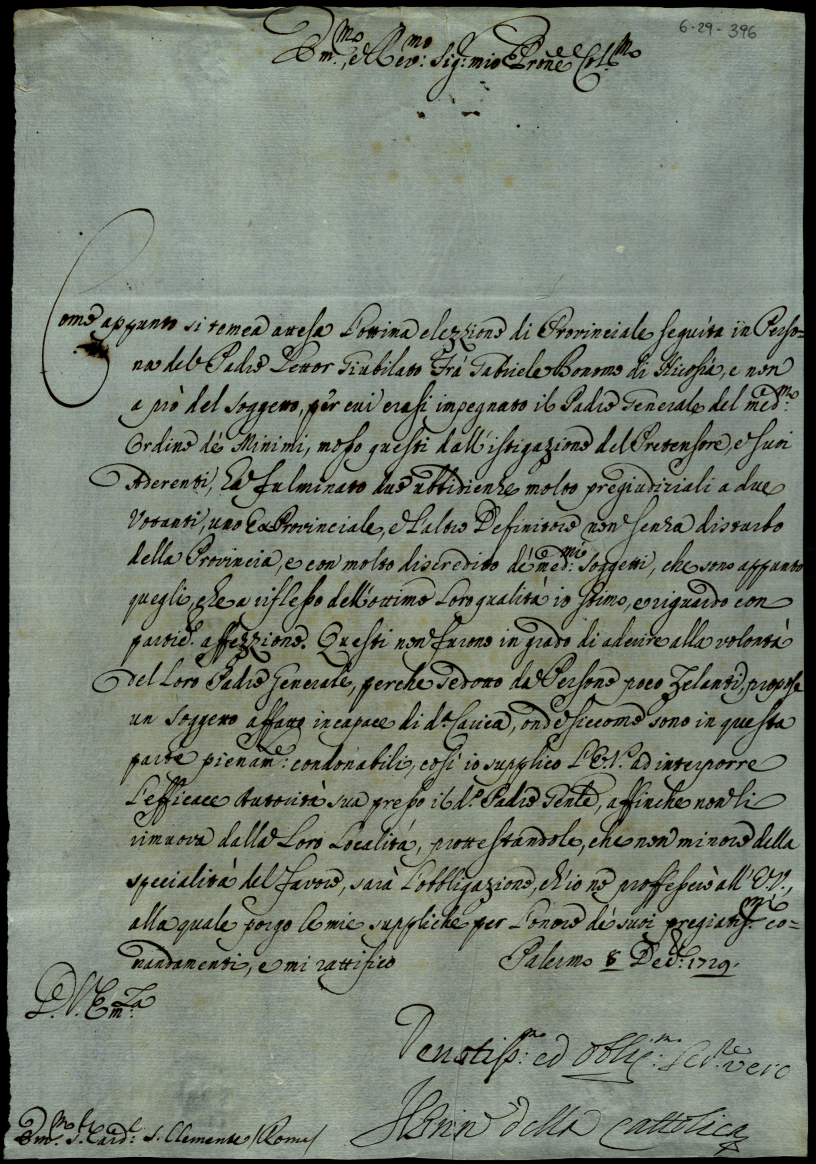 6-29-396
Em.mo, e Rev.mo Sig: mio P̃rone Col.mo
Come appunto si temea attesa l'ottima elezzione di Provinciale seguita in Perso=
na del Padre Lettor Giubilato Frà Gabriele Bonomo di Nicosia, e non
a prò del soggetto, per cui erasi impegnato il Padre Generale del med.mo
Ordine de' Minimi, mosso questi dall'istigazione del Pretensore, e suoi
Aderenti, hà fulminato due ubbidienze molto pregiudiziali a due
Votanti, uno Ex Provinciale, e l'altro Definitore non senza disturbo
della Provincia, e con molto discredito de' med.mi soggetti, che sono appunto
quegli, che a riflesso dell'ottime Loro qualità io stimo, e riguardo con
partic.r affezzione. Questi non furono in grado di aderire alla volontà
del Loro Padre Generale, perche sedotto da Persone poco Zelanti, propose
un soggetto affatto incapace di d.ta Carica, onde siccome sono in questa
parte pienam.te condonabili, così io supplico l'E.V. ad interporre
l'efficace Autorità sua presso il d.o Padre Gen̄le, affinche non li
rimuova dalla Loro Località, protestandole, che non minore della
specialità del favore, sarà l'obbligazione, ch'io ne professerò all'E.V.,
alla quale porgo le mie suppliche per l'onore de' suoi pregiatis.mi co=
mandamenti, e mi rattifico Palermo 8 Dec.e 1729.
D. V. Em.za
Devotiss.mo ed oblig.mo ser.re vero
Il Prin della Cattolica
Em.mo S. Card.l S. Clemente / Roma /